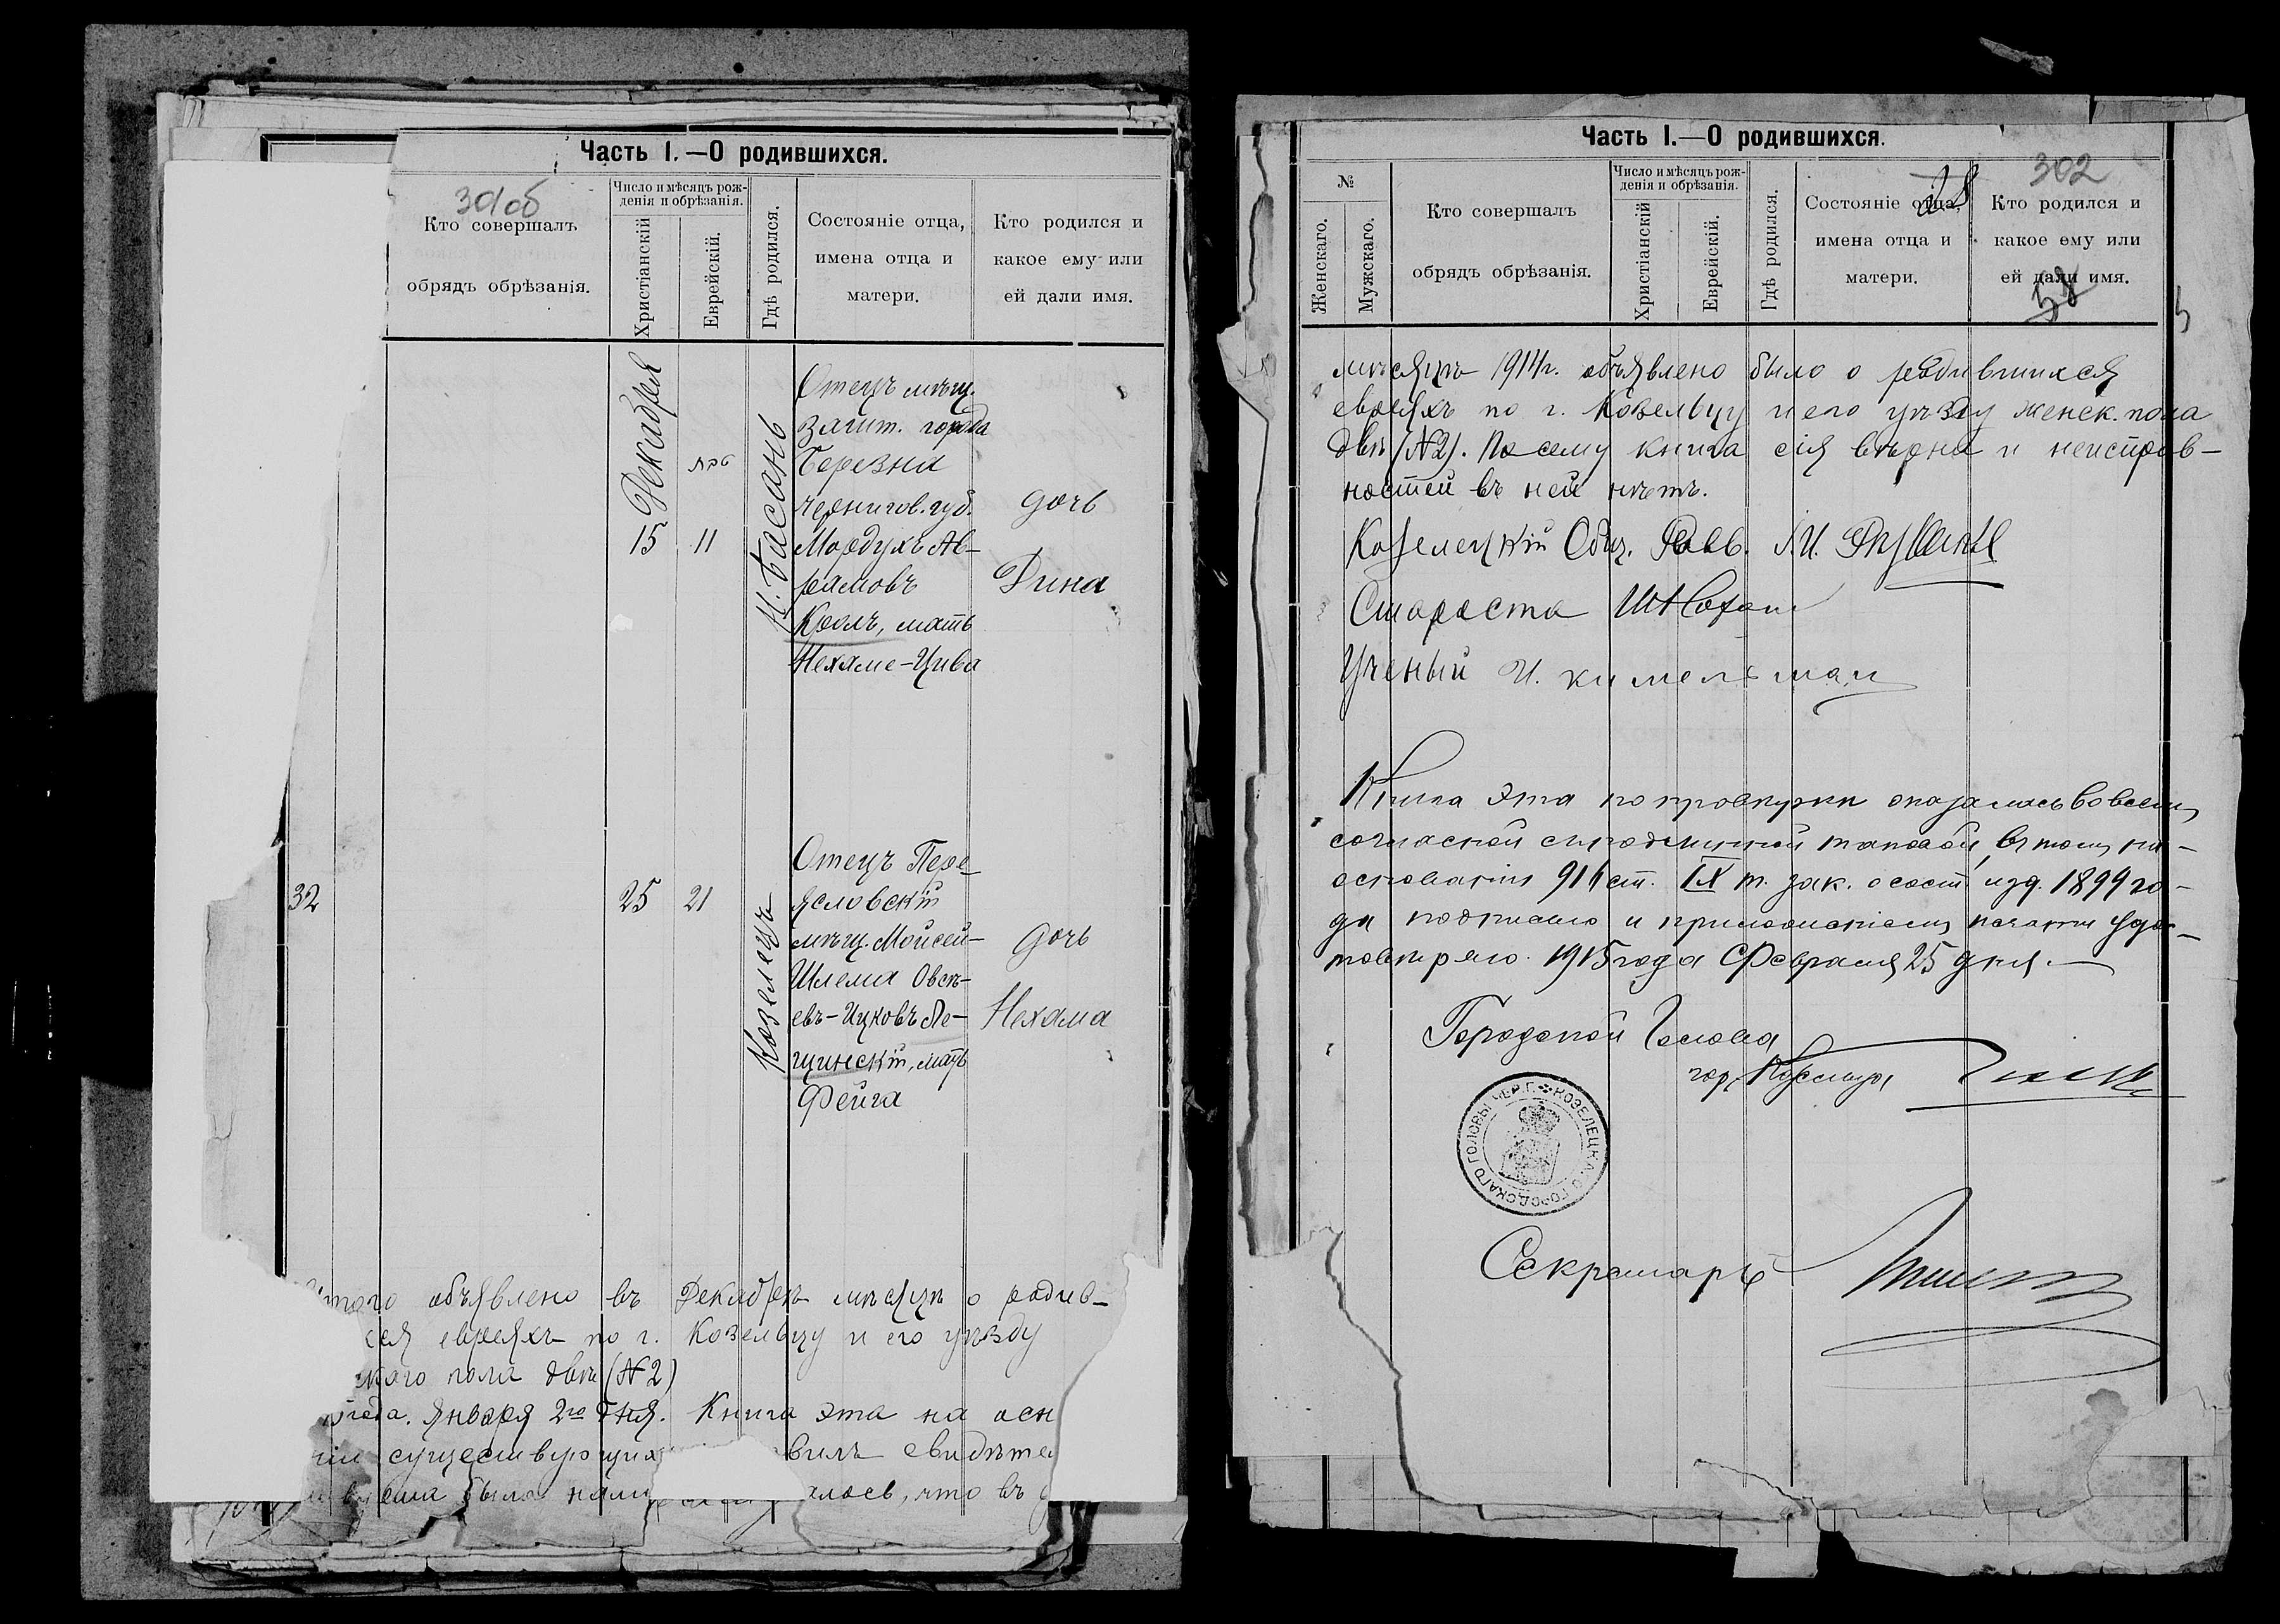 Часть I.—О родившихся.
301об
Кто совершалъ
обрядъ обрѣзанія.
Число и мѣсяцъ рож-
денія и обрѣзанія.
Христіанскій
Еврейскій.
Гдѣ родился.
Состояніе отца,
имена отца и
матери.
Кто родился и
какое ему или
ей дали имя.
Декабря
15
11
Н. Басань
Отецъ мѣщ.
зашт. города
Березна
чернигов. губ.
Мордухъ Ав-
рамовъ
Кролъ, мать
Нехаме-Цива
дочь
Дина
32
25
21
Козелецъ
Отецъ Пере-
яславскій
мѣщ. Мойсей-
Шлема Овсѣ-
евъ-Ицковъ Ле-
щинскій, мать
Фейга
дочь
Нехама
Итого объявлено въ Декабрѣ мѣсяцѣ о родив-
ся евреяхъ по г. Козельцу и его уѣзду
скаго пола двѣ (№2)
года. Января 2го дня. Книга эта на осн
ніи существующих вилъ свидѣте
была нами алось, что въ
Часть I.—О родившихся.
№
Женскаго.
Мужскаго.
Кто совершалъ
обрядъ обрѣзанія.
Число и мѣсяцъ рож-
денія и обрѣзанія.
Христіанскій
Еврейскій.
Гдѣ родился.
Состояніе отца,
имена отца и
матери.
302
Кто родился и
какое ему или
ей дали имя.
58
мѣсяцѣ 1914г. объявлено было о родившихся
евреяхъ по г. Козельцу и его уѣзду женск. пола
двѣ (№2). По сему книга сія вѣрна и неисправ-
ностей въ ней нѣтъ.
Козелецкій Общ. Равв.
Староста
Ученый И. кимельман
Книга эта по провѣркѣ оказалась во всемъ
согласной съ подлинной таковой, въ томъ на-
основаніи 916 ст. IX т. зак. о сост. изд. 1899 го-
да подписью и приложеніемъ печати удос-
товѣряю. 1915 года Февраля 25 дня.
Городской Голова
гор. Козельца
КОЗЕЛЕЦКАГО ГОРОДСКАГО ГОЛОВЫ ЧЕР. Г.
Секретарь